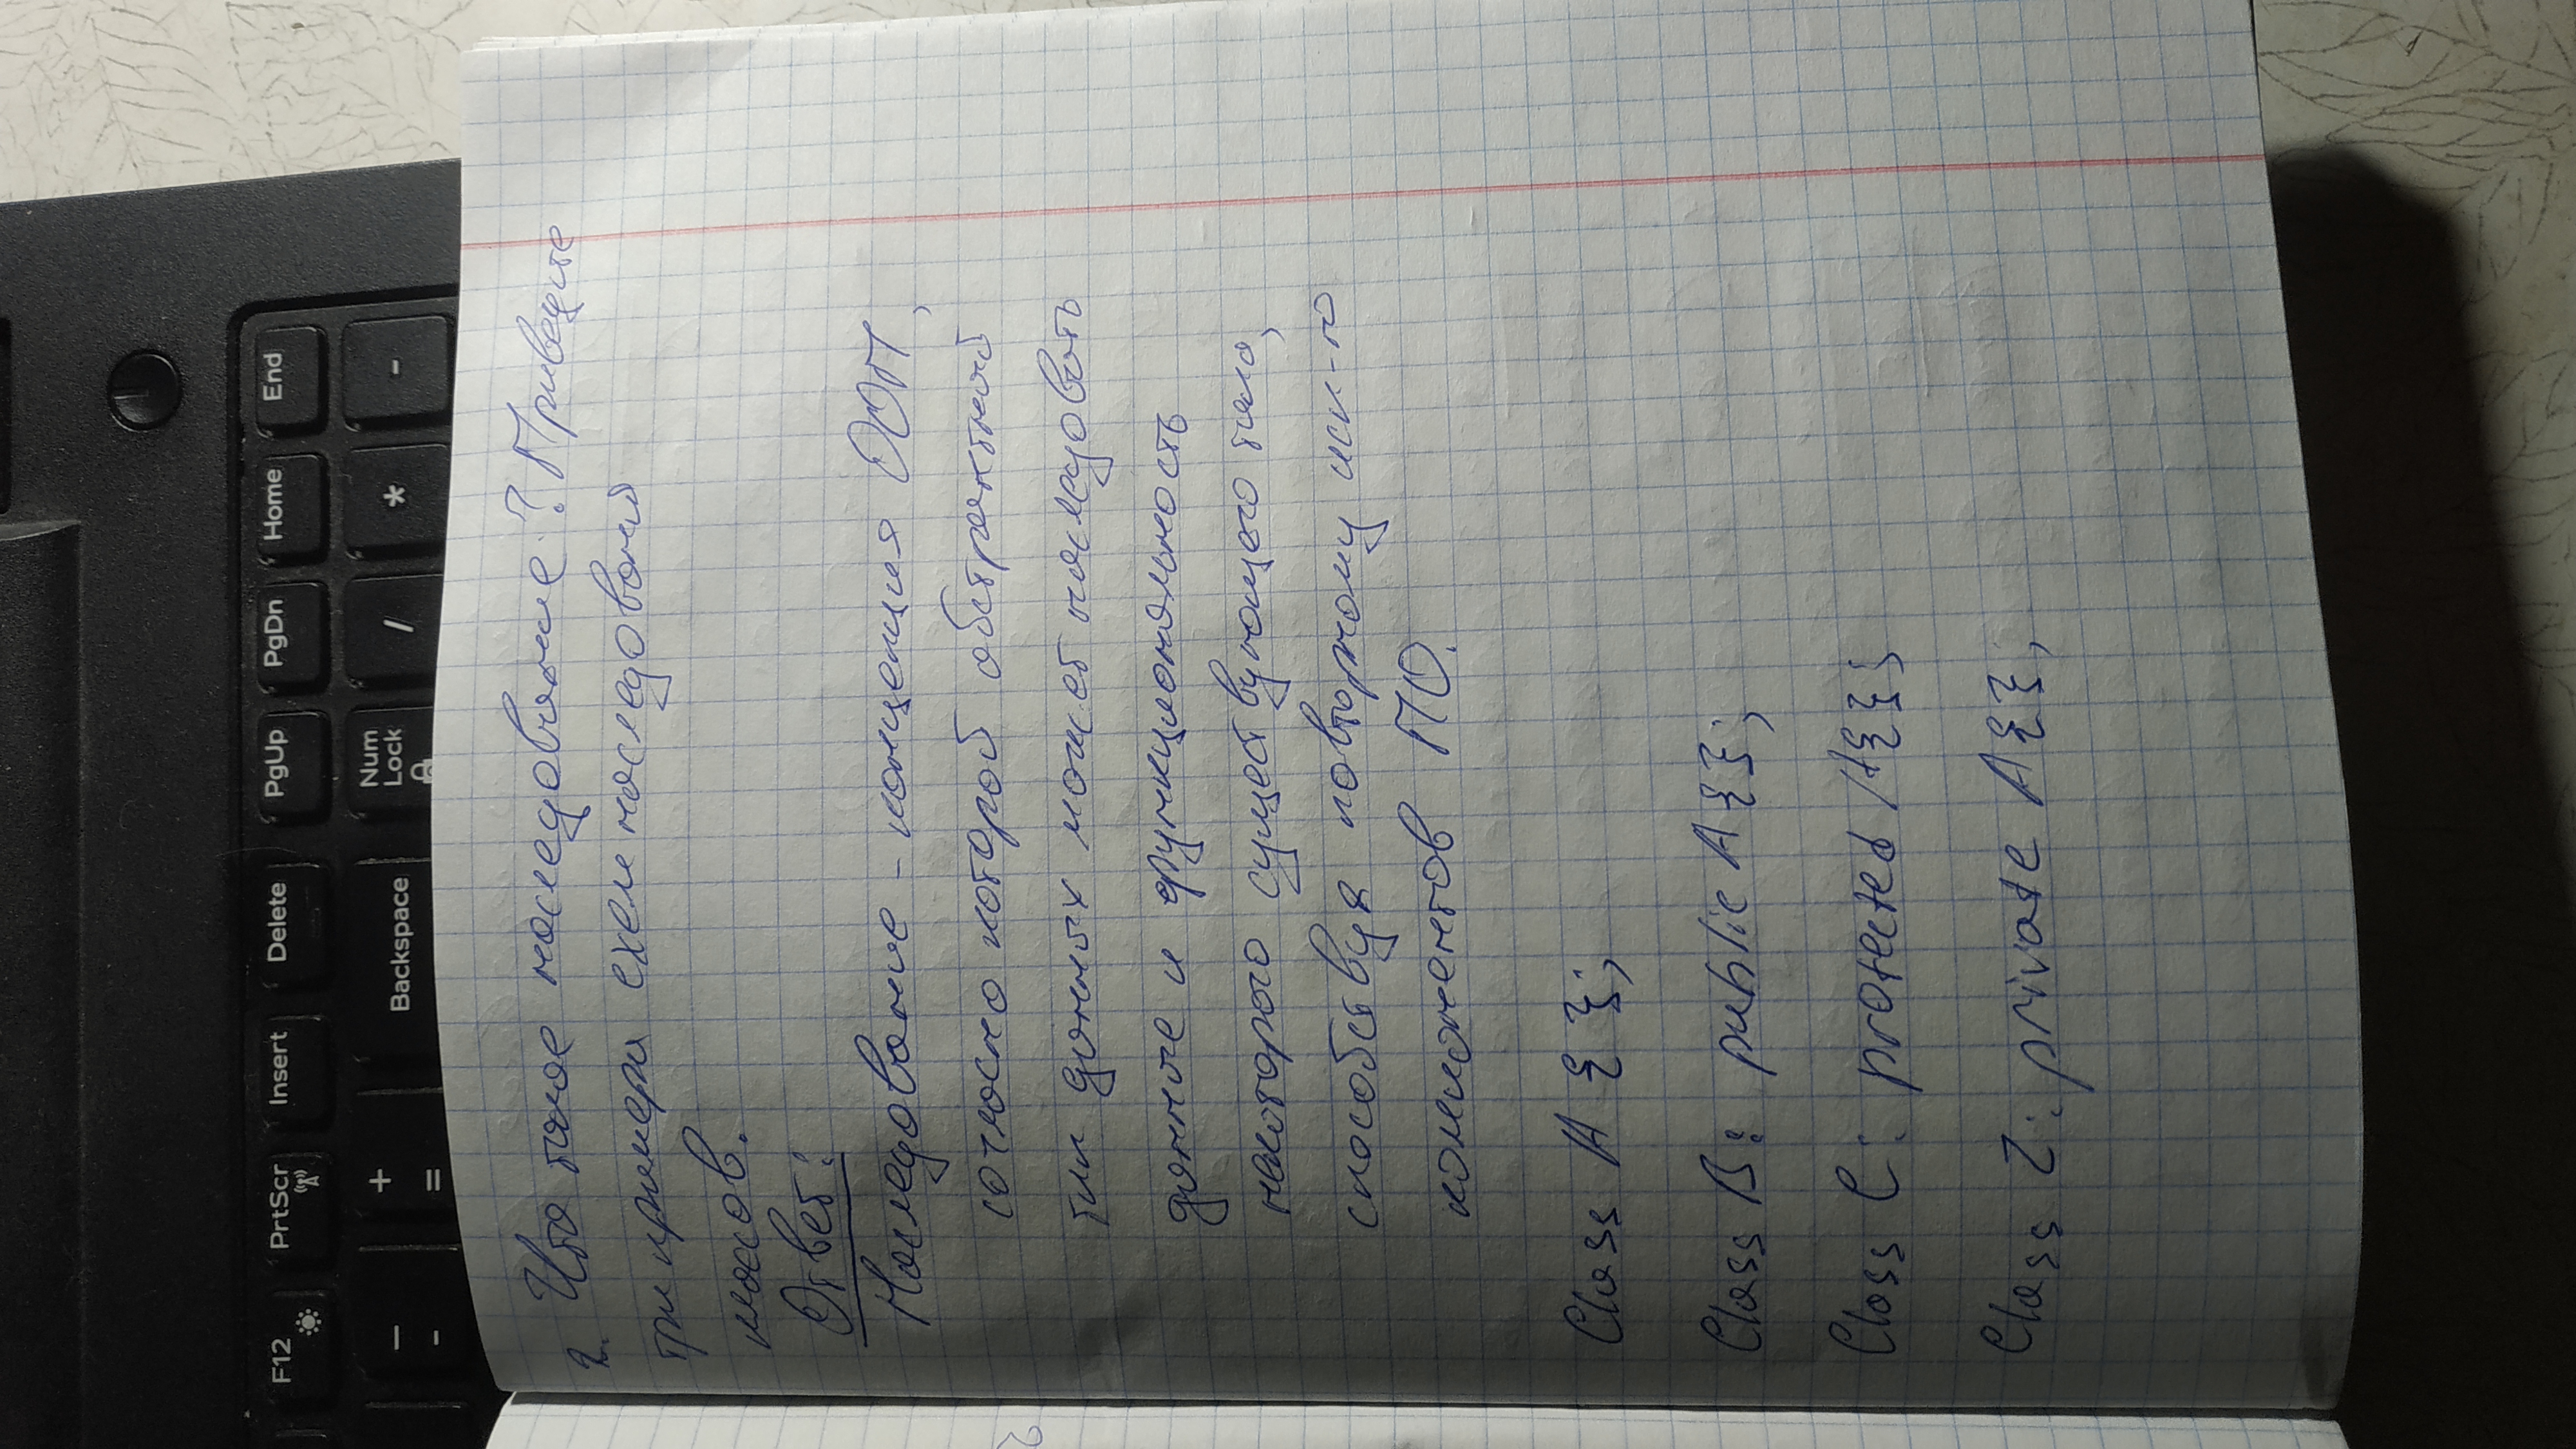 F12
PrtScr
Insert
Delete
PgUp
PgDn
Home
End
—
-
+
=
Backspace
Num
Lock
/
*
-
2. Что такое наследование? Приведите
три примера схем наследования
классов.
Ответ:
Наследование - концепция ООП,
согласно которой абстрактный
тип данных может наследовать
данные и функциональность
некоторого существующего типа,
способствуя повторному исп-ю
компонентов ПО.
Class A { };
Class B: public A{};
Class C: protected A{};
Class Z: private A{};